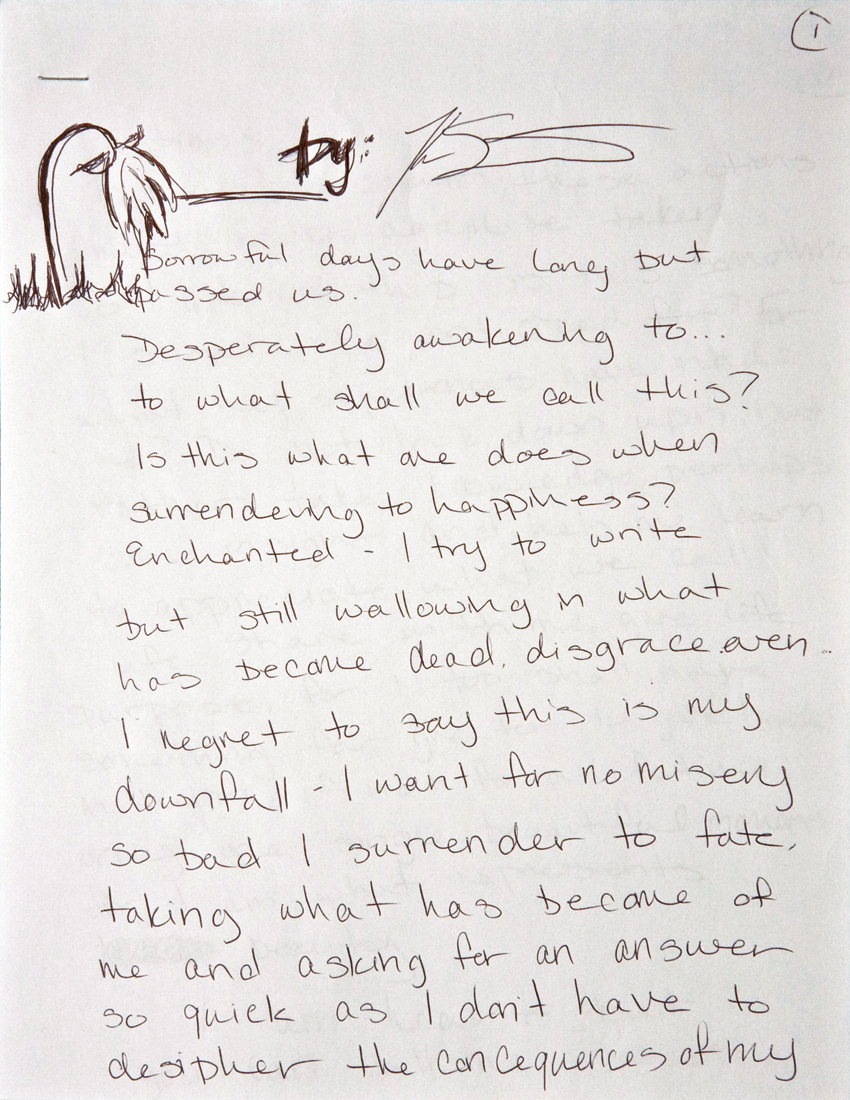 1
by:
Sorrowful days have long but
passed us.
Desperately awakening to...
to what shall we call this?
Is this what one does when
surrendering to happiness?
Enchanted - I try to write
but still wallowing in what
has become dead. disgrace even..
I regret to say this is my
downfall - I want for no misery
so bad I surrender to fate,
taking what has become of
me and asking for an answer
so quick as I don't have to
desipher the concequences of my